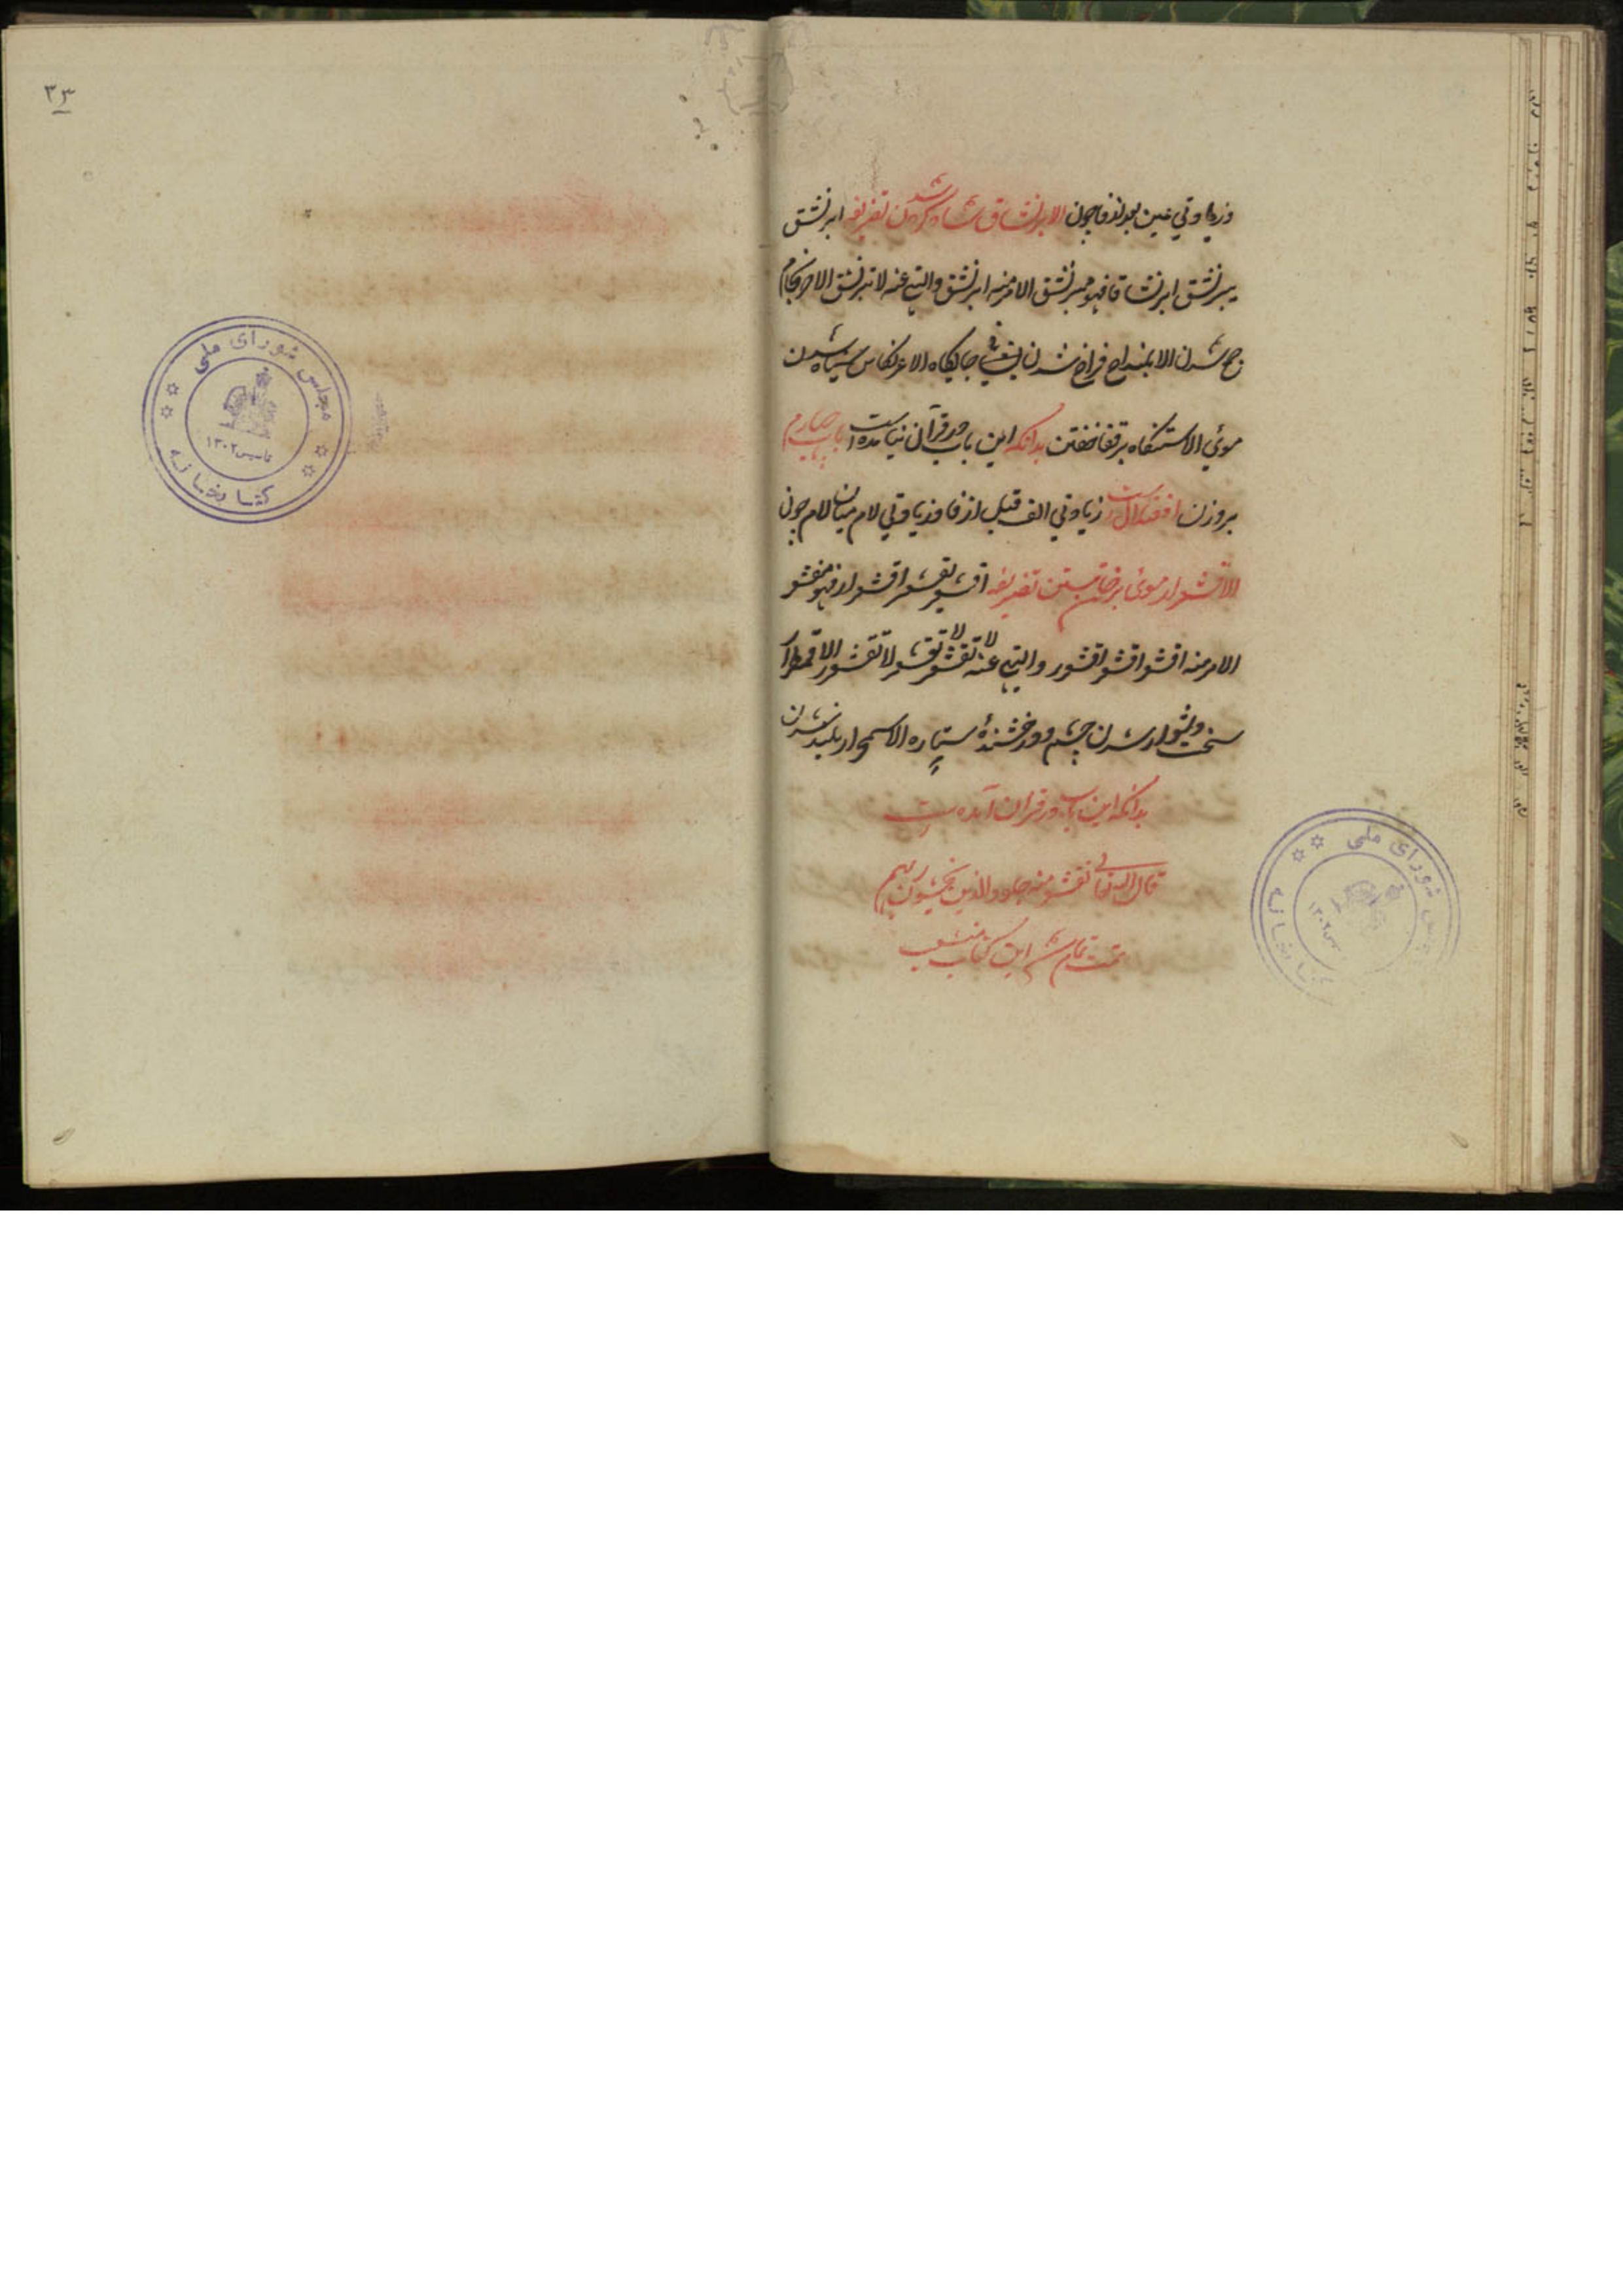 وزیاوتی عین بعد از فا چون الابرنشاق شاد شدن کردن تصریفه ابرنشق
یبرنشق ابرنشاقا فهو مبرنشق الامر منه ابرنشق والنهی عنه لا تبرنشق الاحرنجام
جمع شدن الابلنداح فراخ شدن یعنی جایگاه الاعرنکاس سیاه شدن
موئی الاسلنقاء برقفا خفتن بدانکه این باب در قرآن نیامده است باب چهارم
بروزن افعلال است زیاوتی الف قبل از فا وزیاوتی لام میان لام چون
الاقشعرار موی برخاستن تصریفه اقشعر یقشعر اقشعرارا فهو مقشعر
الامر منه اقشعر اقشعر اقشعرر والنهی عنه لا تقشعر لا تقشعر لا تقشعرر الاقمطرار
سخت ودشوار شدن چشم و درخشنده ستاره الاسمحرار بلند شدن
بدانکه این باب در قرآن آمده است
قال الله تعالی تقشعر منه جلود الذین یخشون ربهم
تمت تمام شد این کتاب منشعب
۳۳
مجلس شورای ملی
کتابخانه
تاسیس ۱۳۰۲
شورای ملی